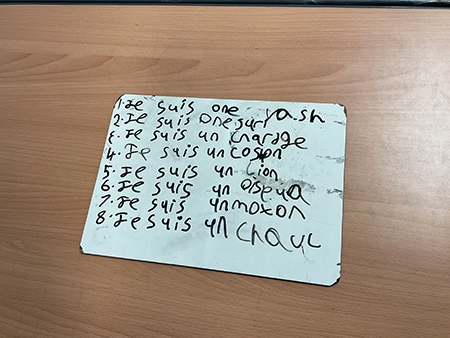 1. Je suis one vash
2. Je suis one suri
3. Je suis un charage
4. Je suis un coson
5. Je suis un lion
6. Je suis un oiseua
7. Je suis un moxon
8. Je suis un chaul